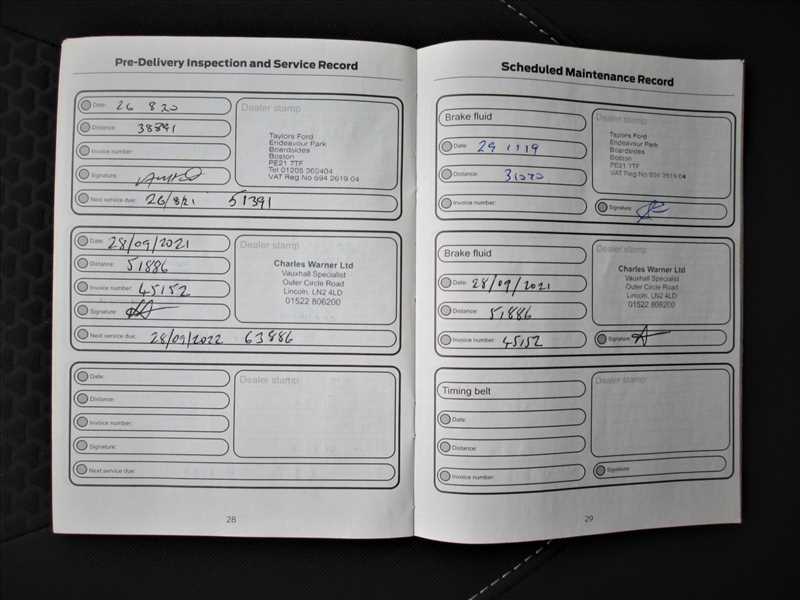 Pre-Delivery Inspection and Service Record
Date: 26 8 20
Distance:
Invoice number:
Signature:
Next service due: 26/8/21 51391
Dealer stamp
Taylors Ford
Endeavour Park
Boardsides
Boston
PE21 7TF
Tel 01205 360404
VAT Reg No 694 2619 04
Date: 28/09/2021
Distance: 51886
Invoice number: 45152
Signature:
Next service due: 28/09/2022 63886
Dealer stamp
Charles Warner Ltd
Vauxhall Specialist
Outer Circle Road
Lincoln, LN2 4LD
01522 806200
Date:
Distance:
Invoice number:
Signature:
Next service due:
Dealer stamp
28
Scheduled Maintenance Record
Brake fluid
Date: 29 11 19
Distance:
Invoice number:
Dealer stamp
Taylors Ford
Endeavour Park
Boardsides
Boston
PE21 7TF
VAT Reg No 694 2619 04
Signature:
Brake fluid
Date: 28/09/2021
Distance: 51886
Invoice number: 45152
Dealer stamp
Charles Warner Ltd
Vauxhall Specialist
Outer Circle Road
Lincoln, LN2 4LD
01522 806200
Signature:
Timing belt
Date:
Distance:
Invoice number:
Dealer stamp
Signature:
29